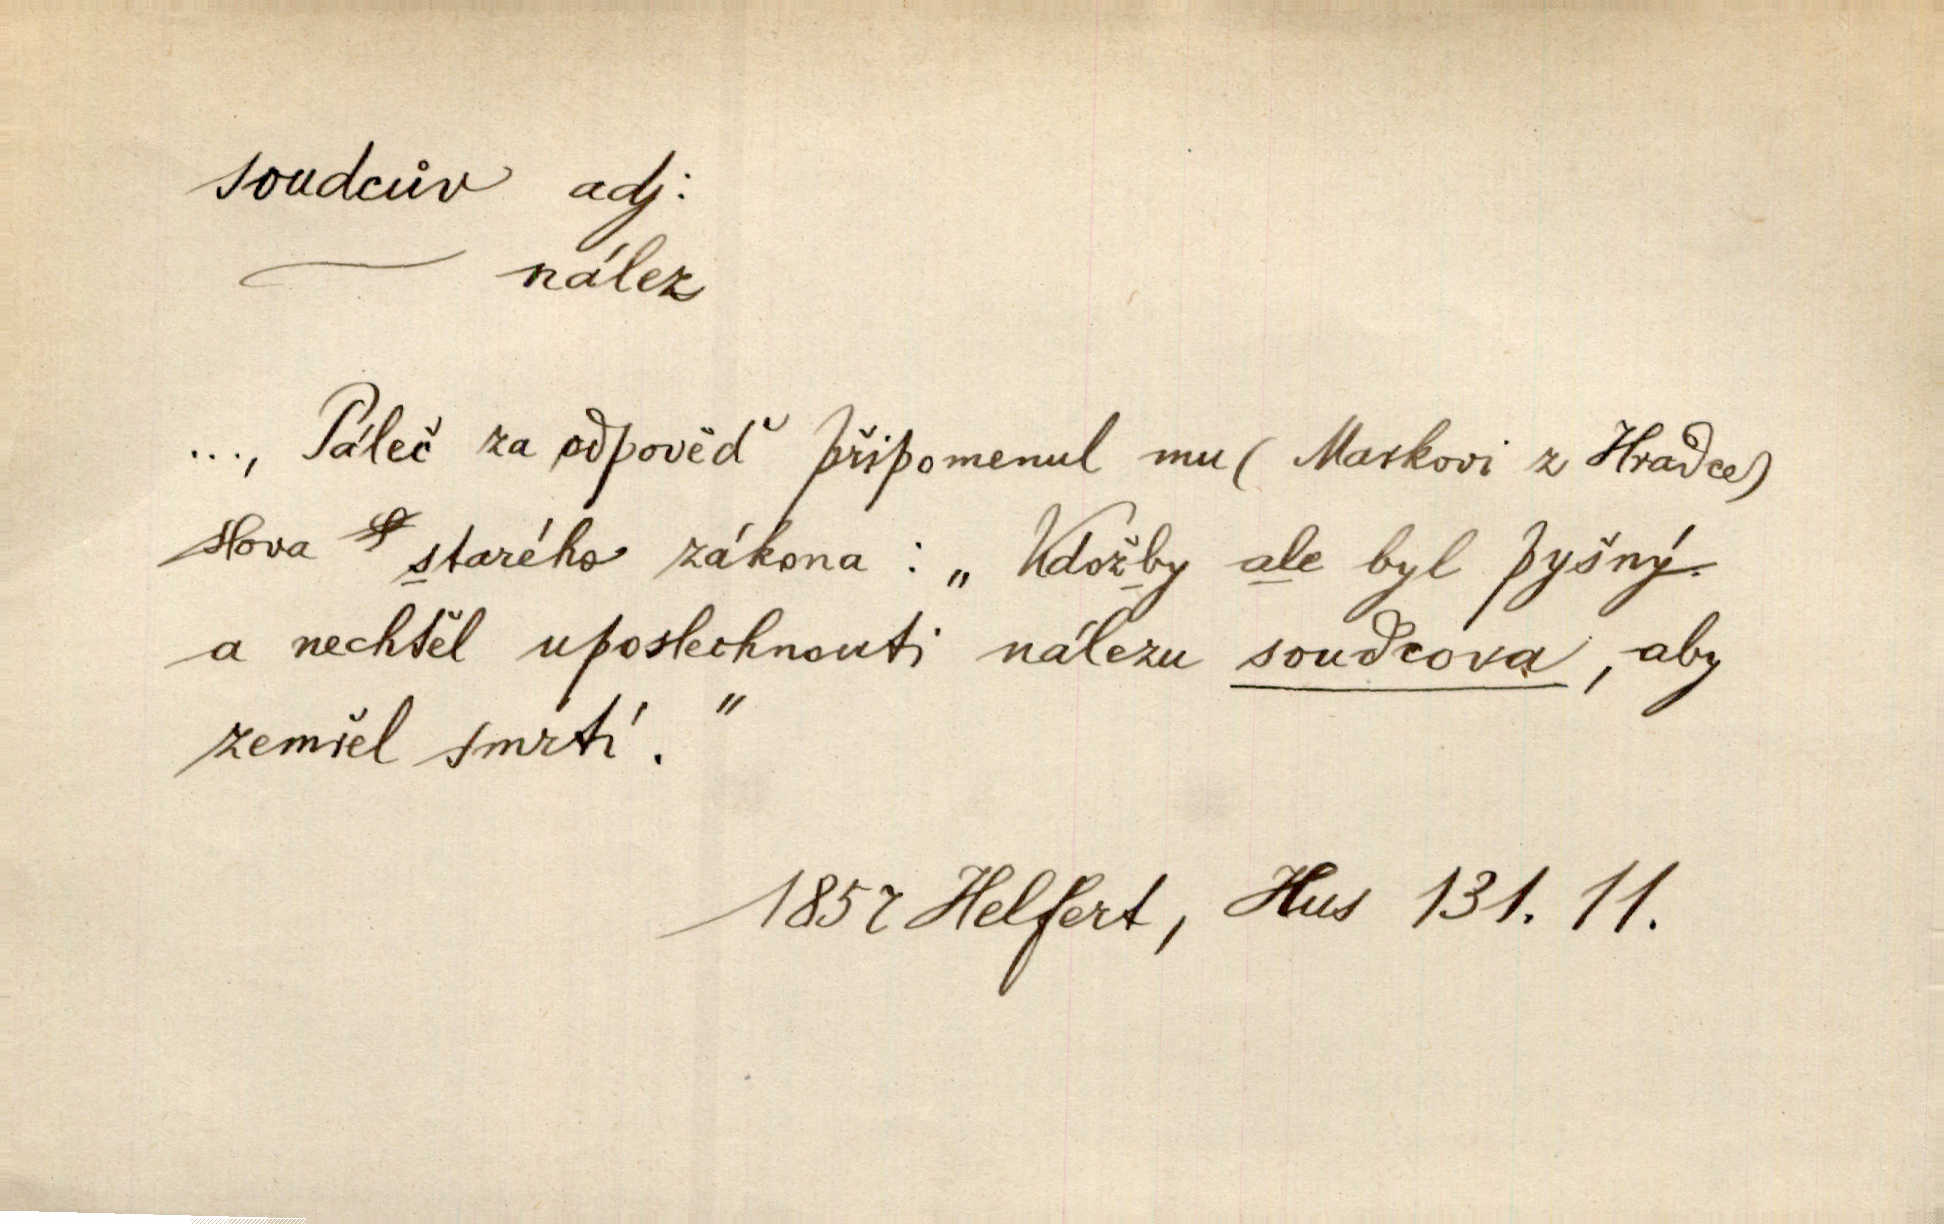 soudcův adj:
— nález
..., Páleč za odpověď připomenul mu ( Markovi z Hradce)
slova starého zákona : „ Kdožby ale byl pyšný
a nechtěl uposlechnouti nálezu soudcova , aby
zemřel smrtí . "
1857 Helfert, Hus 131. 11.